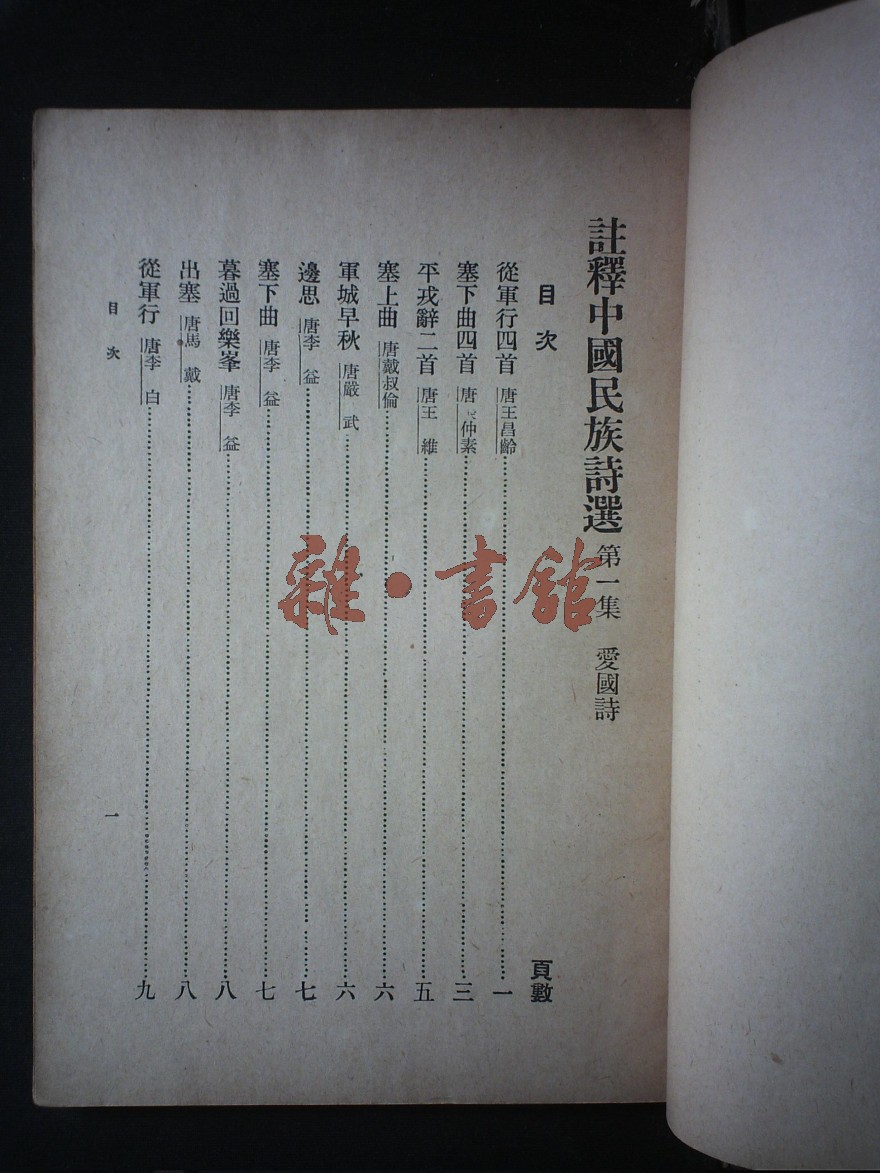 註釋中國民族詩選 第一集 愛國詩
目次 頁數
從軍行四首 唐王昌齡 一
塞下曲四首 唐 仲素 三
平戎辭二首 唐王維 五
塞上曲 唐戴叔倫 六
軍城早秋 唐嚴武 六
邊思 唐李益 七
塞下曲 唐李益 七
暮過回樂峯 唐李益 八
出塞 唐馬戴 八
從軍行 唐李白 九
目次 一
雜·書館